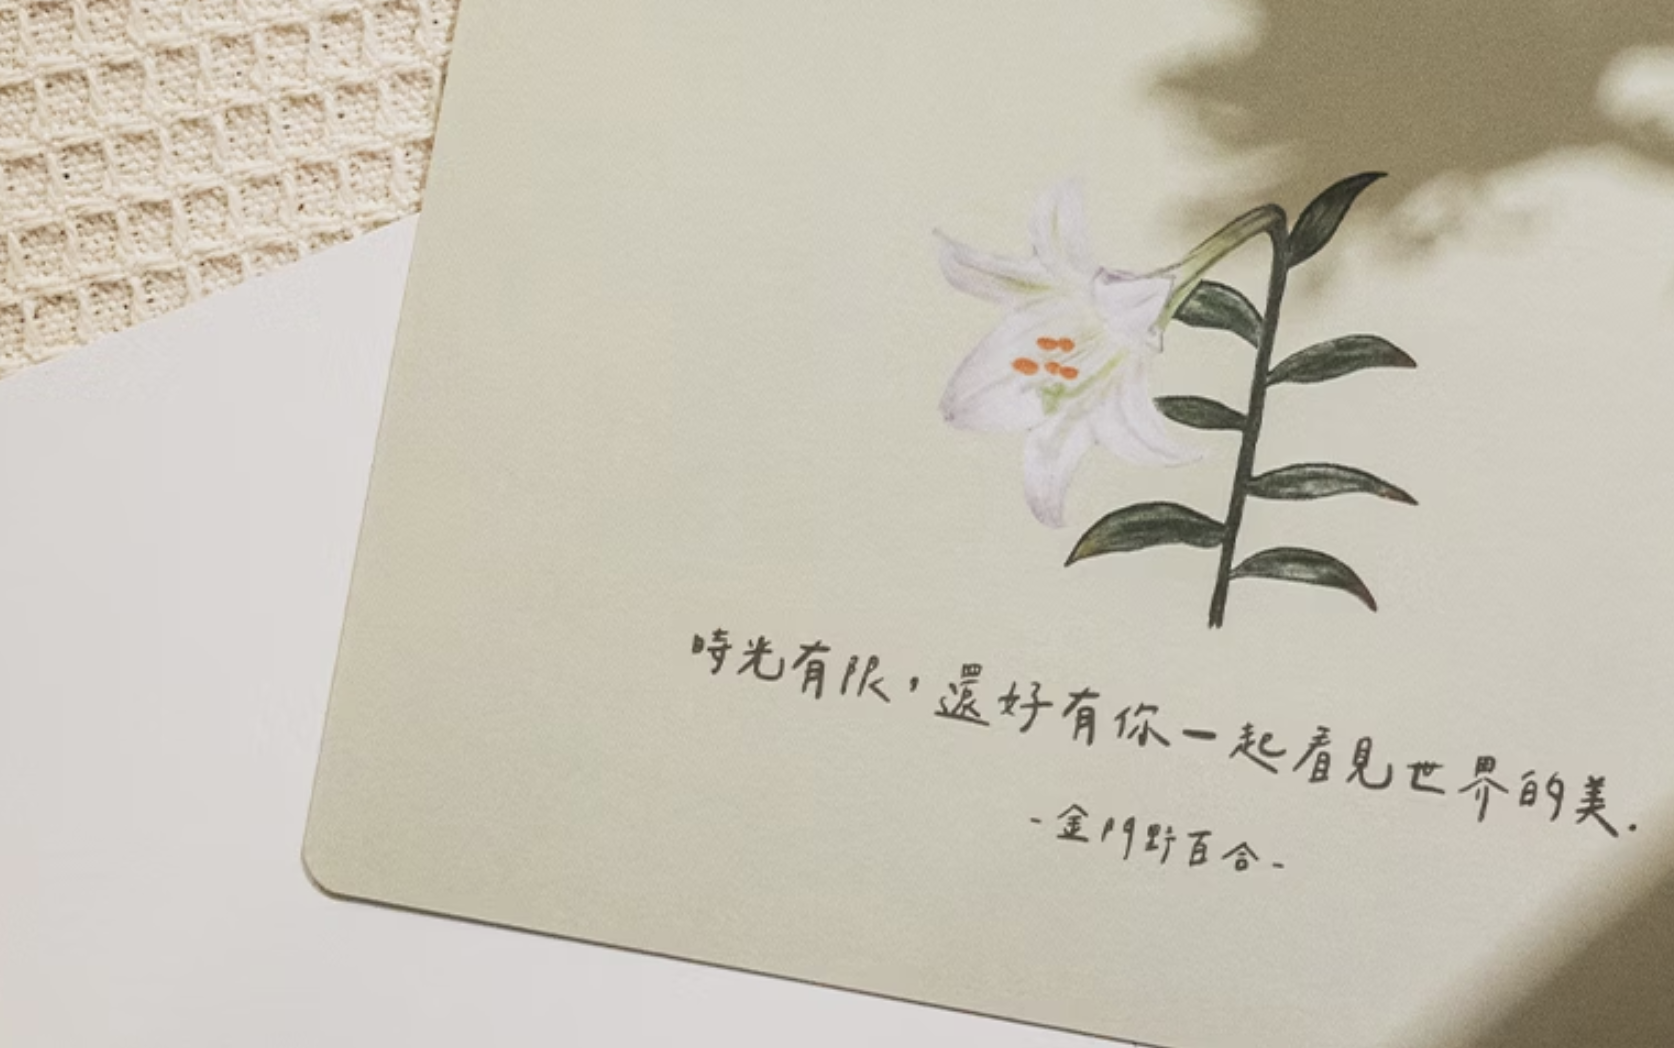 時光有限，還好有你一起看見世界的美.
-金門野百合-